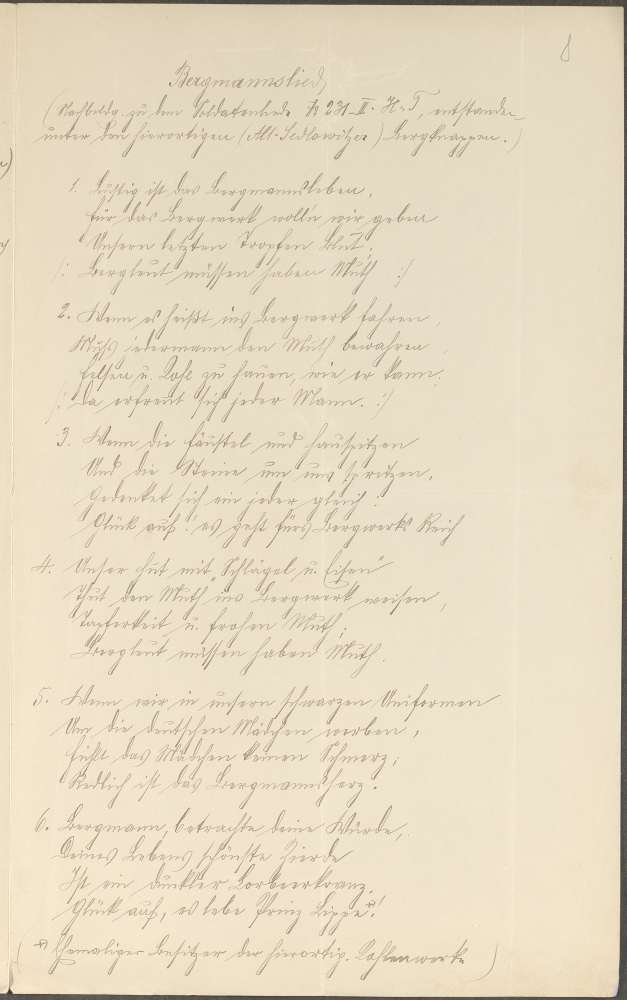 8
Bergmannslied
(Nachbildg. zu dem Soldatenliede № 231-II. H-T, entstanden
unter den hierortigen (Alt-Sedlowitzer) Bergknappen.)
1. Lustig ist das Bergmannsleben,
Für das Bergwerk woll'n wir geben
Unsern letzten Tropfen Blut;
/: Bergleut müssen haben Muth :/
2. Wenn es heißt ins Bergwerk fahren,
Muß jedermann den Muth bewahren,
Felsen u. Kohl zu hauen, wie er kann.
/: Da erfreut sich jeder Mann. :/
3. Wenn die Fäustel und Hauspitzen
Und die Steine um uns spritzen,
Gedenket sich ein jeder gleich:
Glück auf! es geht fürs Bergwerks Reich
4. Unser Hut mit „Schlägel u. Eisen"
Thut den Muth ins Bergwerk weisen,
Tapferkeit u. frohen Muth;
Bergleut müssen haben Muth.
5. Wenn wir in unsern schwarzen Uniformen
Um die deutschen Mädchen werben,
Fühlt das Mädchen keinen Schmerz;
Redlich ist das Bergmannsherz.
6. Bergmann, betrachte deine Würde,
Deines Lebens schönste Zierde
Ist ein dunkler Lorbeerkranz,
Glück auf, es lebe Prinz Lippe*!
(*) Ehemaliger Besitzer der hierortig. Kohlenwerke)